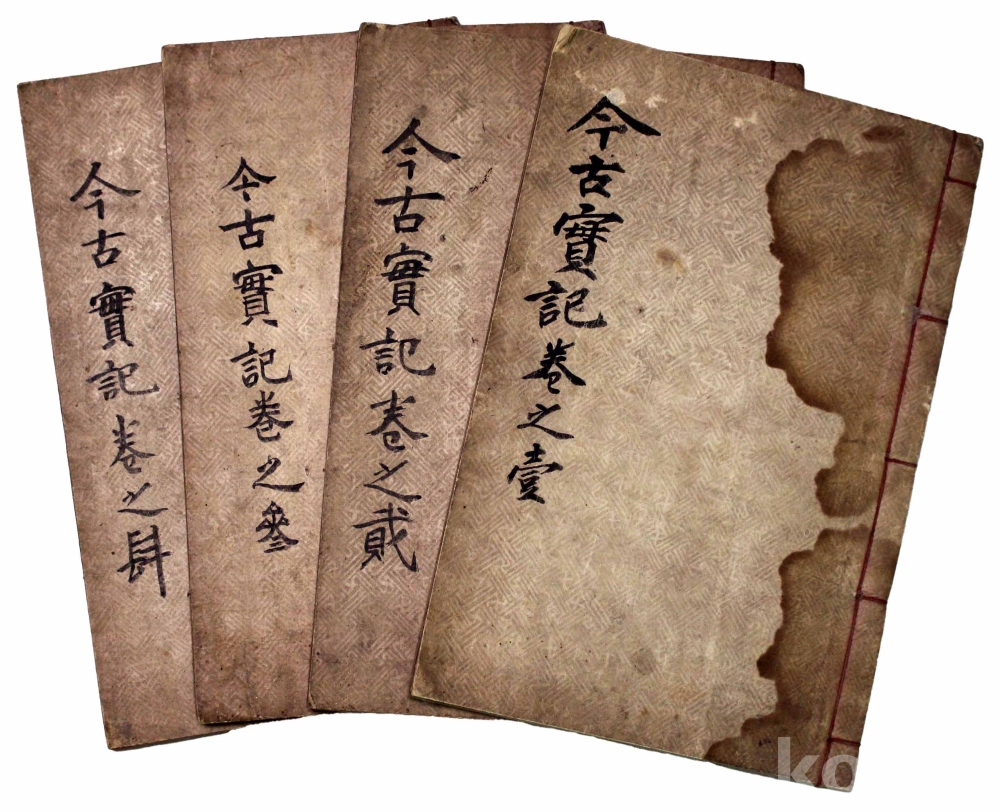 今古實記卷之壹
今古實記卷之貳
今古實記卷之參
今古實記卷之肆
ko